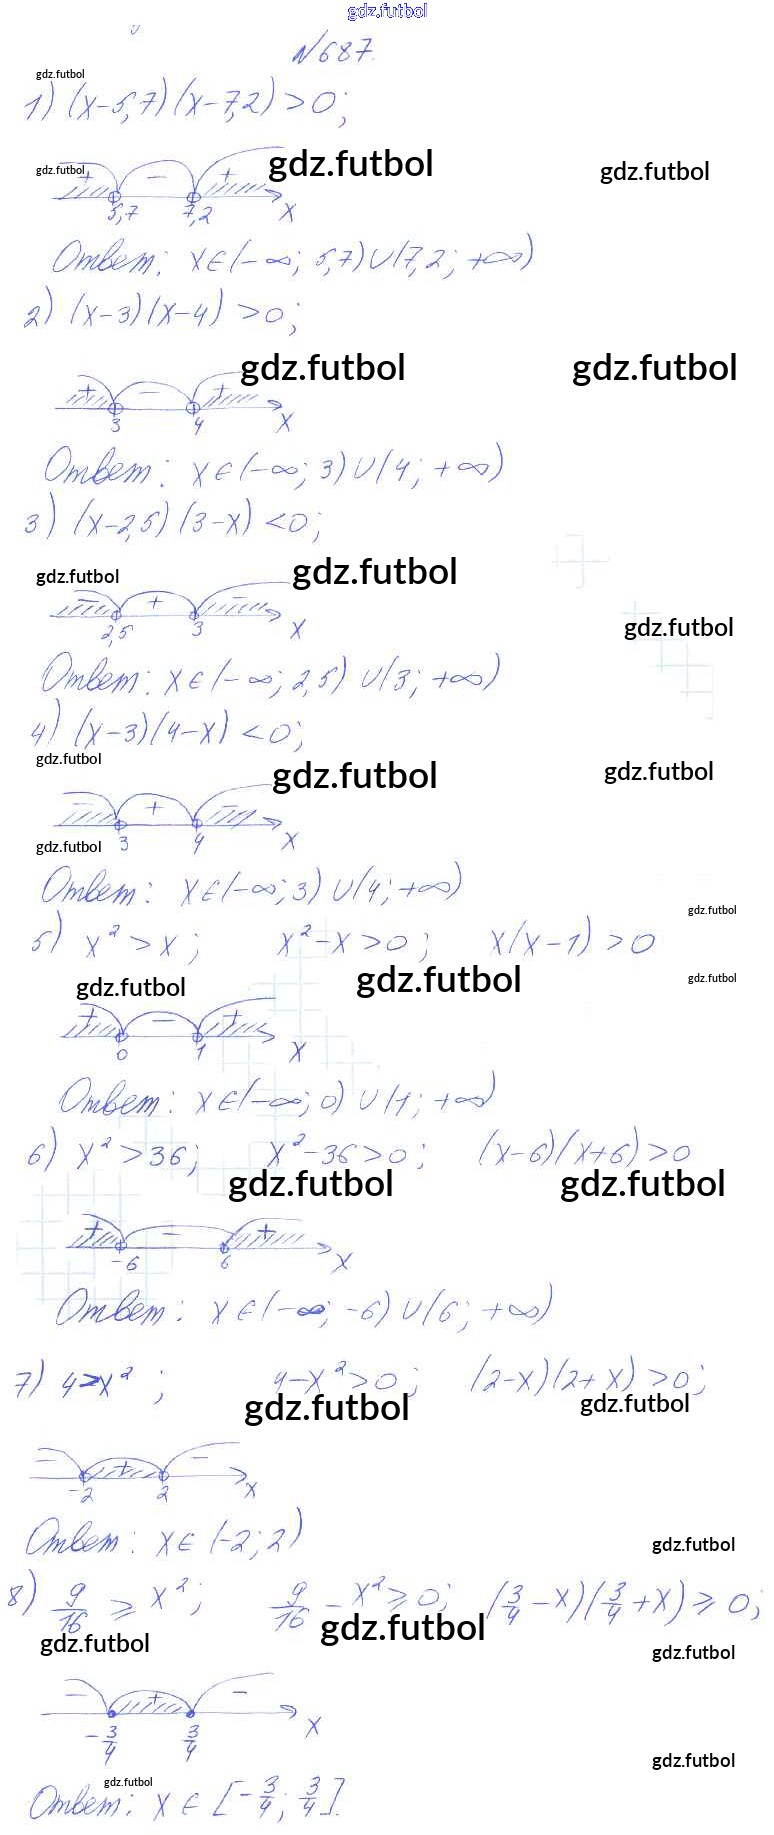 gdz.futbol
№687.
gdz.futbol
1) (x-5,7)(x-7,2)>0;
gdz.futbol gdz.futbol gdz.futbol
+ − +
5,7 7,2 x
Ответ: x∈(-∞; 5,7)∪(7,2; +∞)
2) (x-3)(x-4)>0;
gdz.futbol gdz.futbol
+ − +
3 4 x
Ответ: x∈(-∞; 3)∪(4; +∞)
3) (x-2,5)(3-x)<0;
gdz.futbol gdz.futbol
− + −
2,5 3 x gdz.futbol
Ответ: x∈(-∞; 2,5)∪(3; +∞)
4) (x-3)(4-x)<0;
gdz.futbol gdz.futbol gdz.futbol
− + −
gdz.futbol 3 4 x
Ответ: x∈(-∞; 3)∪(4; +∞)
gdz.futbol
5) x²>x; x²-x>0; x(x-1)>0
gdz.futbol gdz.futbol gdz.futbol
+ − +
0 1 x
Ответ: x∈(-∞; 0)∪(1; +∞)
6) x²>36; x²-36>0; (x-6)(x+6)>0
gdz.futbol gdz.futbol
+ − +
-6 6 x
Ответ: x∈(-∞; -6)∪(6; +∞)
7) 4>x²; 4-x²>0; (2-x)(2+x)>0;
gdz.futbol gdz.futbol
− + −
-2 2 x
Ответ: x∈(-2; 2)
gdz.futbol
8) 9/16 ≥ x²; 9/16 - x² ≥ 0; (3/4 - x)(3/4 + x) ≥ 0;
gdz.futbol gdz.futbol gdz.futbol
− + −
-3/4 3/4 x
gdz.futbol
gdz.futbol
Ответ: x∈[-3/4; 3/4].